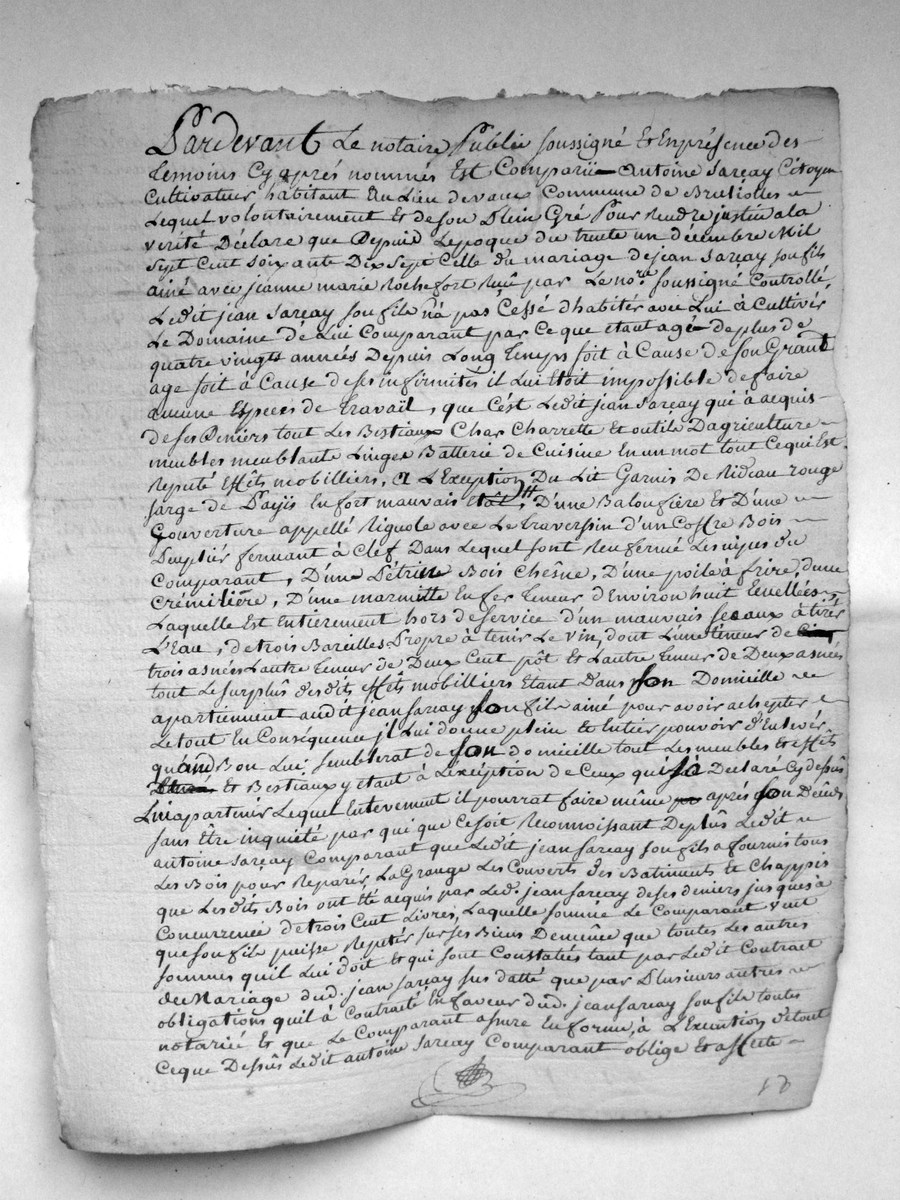 Pardevant Le notaire Public soussigné Et En présence des
temoins Cy après nommés Est Comparü Antoine Sarcay Citoyen
Cultivateur habitant Au Lieu devaux Commune de Brullioles
Lequel volontairement Et de son Plein Gré Pour Rendre justice a la
verité Déclare que Depuis Lepoque du trente un décembre Mil
Sept Cent Soixante Dix Sept Celle du mariage de jean Sarcay son fils
ainé avec jeanne marie Rochefort Reçu par Le no.re soussigné Controllé,
Ledit jean Sarcay son fils n'a pas Cessé d'habiter avec Lui à Cultiver
Le Domaine dé Lui Comparant par Ce que etant agé de plus de
quatre vingts années Depuis Long temps soit à Cause de son Grand
age soit à Cause de ses infirmités il Lui Etoit impossible de faire
aucune Especes de travail, que C'est Ledit jean Sarcay qui à acquis
de ses Deniers tout Les Bestiaux Char Charrette Et outils D'agriculture
meubles meublants Linges Batterie de Cuisine En un mot tout Ce qui Est
Reputé Effêts mobilliers, a L'Exeption Du Lit Garnis De Rideau rouge
sarge de Païis En fort mauvais Etât, D'une Baloufière Et D'une
Couverture appellé Rignole avec Le traversin d'un Coffre Bois
Peuplier fermant à Clef Dans Lequel sont Renfermé Les nipes du
Comparant, D'une Pétrière Bois Chesne, D'une poile à frire, d'une
Crémilière, D'une marmitte En fer teneur d'Environ huit Ecuellées
Laquelle Est Entierement hors de service d'un mauvais seeaux à tirér
L'Eau, de trois Bareilles Propre à tenir Le vin, dont L'une teneur de
trois asnées L'autre teneur de Deux Cent pôt Et L'autre teneur de Deux asnées
tout Le surplûs desdits Effêts mobilliers Etant Dans son Domicille
apartiennent audit jean Sarcay son fils ainé pour avoir achepter
Le tout En Conséquence il Lui donne plein Et Entier pouvoir d'Enlevér
quand Bon Lui semblerat de son domicille tout Les meubles Et effêts
Et Bestiaux y etant à L'exéption de Ceux qui'il à Declaré Cy dessûs
Lui apartenir Lequel Enlevement il pourrat faire même après son Décéds
sans Être inquiété par qui que Ce soit Reconnoissant De plûs Ledit
antoine Sarcay Comparant que Ledit jean Sarcay son fils a fournis tous
Les Bois pour Reparér La Grange Les Couverts des Batiments Et Chappis
que Lesdits Bois ont Eté acquis par Led. jean Sarcay de ses deniers jusques à
Concurrence de trois Cent Livres, Laquelle somme Le Comparant veut
que son fils puisse Repeter sur ses Biens De même que toutes Les autres
sommes qu'il Lui doit Et qui sont Constatées tant par Ledit Contract
de Mariage dud. jean Sarcay sus datté que par Plusieurs autres
obligations qu'il à Contraité En faveur dud. jean Sarcay son fils toutes
notarié Et que Le Comparant assure En forme, à L'Execution de tout
Ce que Dessûs Ledit antoine Sarcay Comparant oblige Et affecte